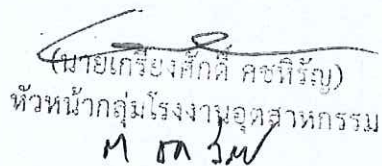 (นายเกรียงศักดิ์ คชหิรัญ)
หัวหน้ากลุ่มโรงงานอุตสาหกรรม